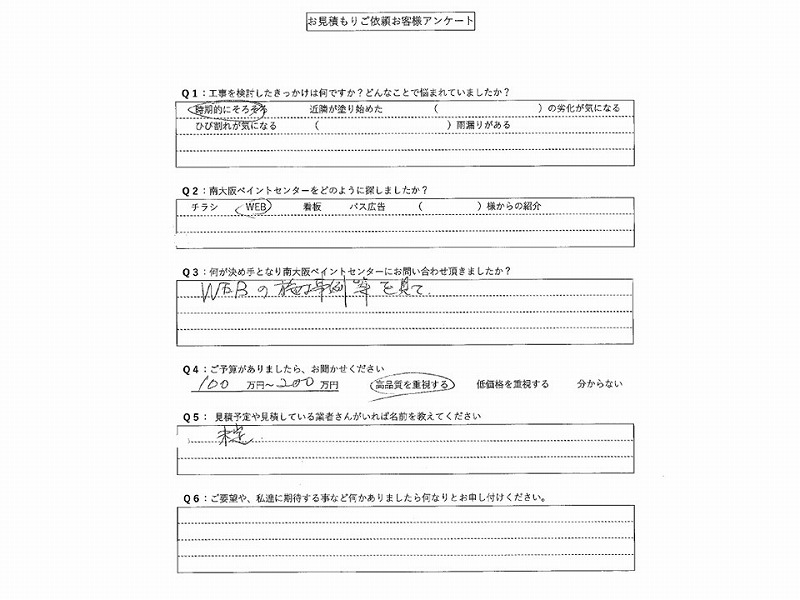 お見積もりご依頼お客様アンケート
Q1：工事を検討したきっかけは何ですか？どんなことで悩まれていましたか？
時期的にそろそろ 近隣が塗り始めた （ ）の劣化が気になる
ひび割れが気になる （ ）雨漏りがある
Q2：南大阪ペイントセンターをどのように探しましたか？
チラシ WEB 看板 バス広告 （ ）様からの紹介
Q3：何が決め手となり南大阪ペイントセンターにお問い合わせ頂きましたか？
WEBの施工事例等を見て.
Q4：ご予算がありましたら、お聞かせください
100 万円～200 万円 高品質を重視する 低価格を重視する 分からない
Q5： 見積予定や見積している業者さんがいれば名前を教えてください
未定.
Q6：ご要望や、私達に期待する事など何かありましたら何なりとお申し付けください。